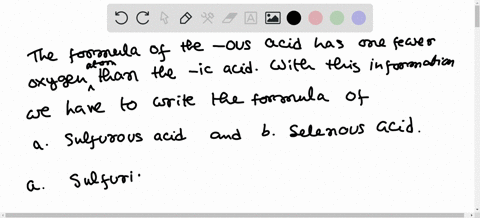 The formula of the -ous acid has one fewer
oxygen atom than the -ic acid. With this information
we have to write the formula of
a. Sulfurous acid and b. Selenous acid.
a. Sulfuri